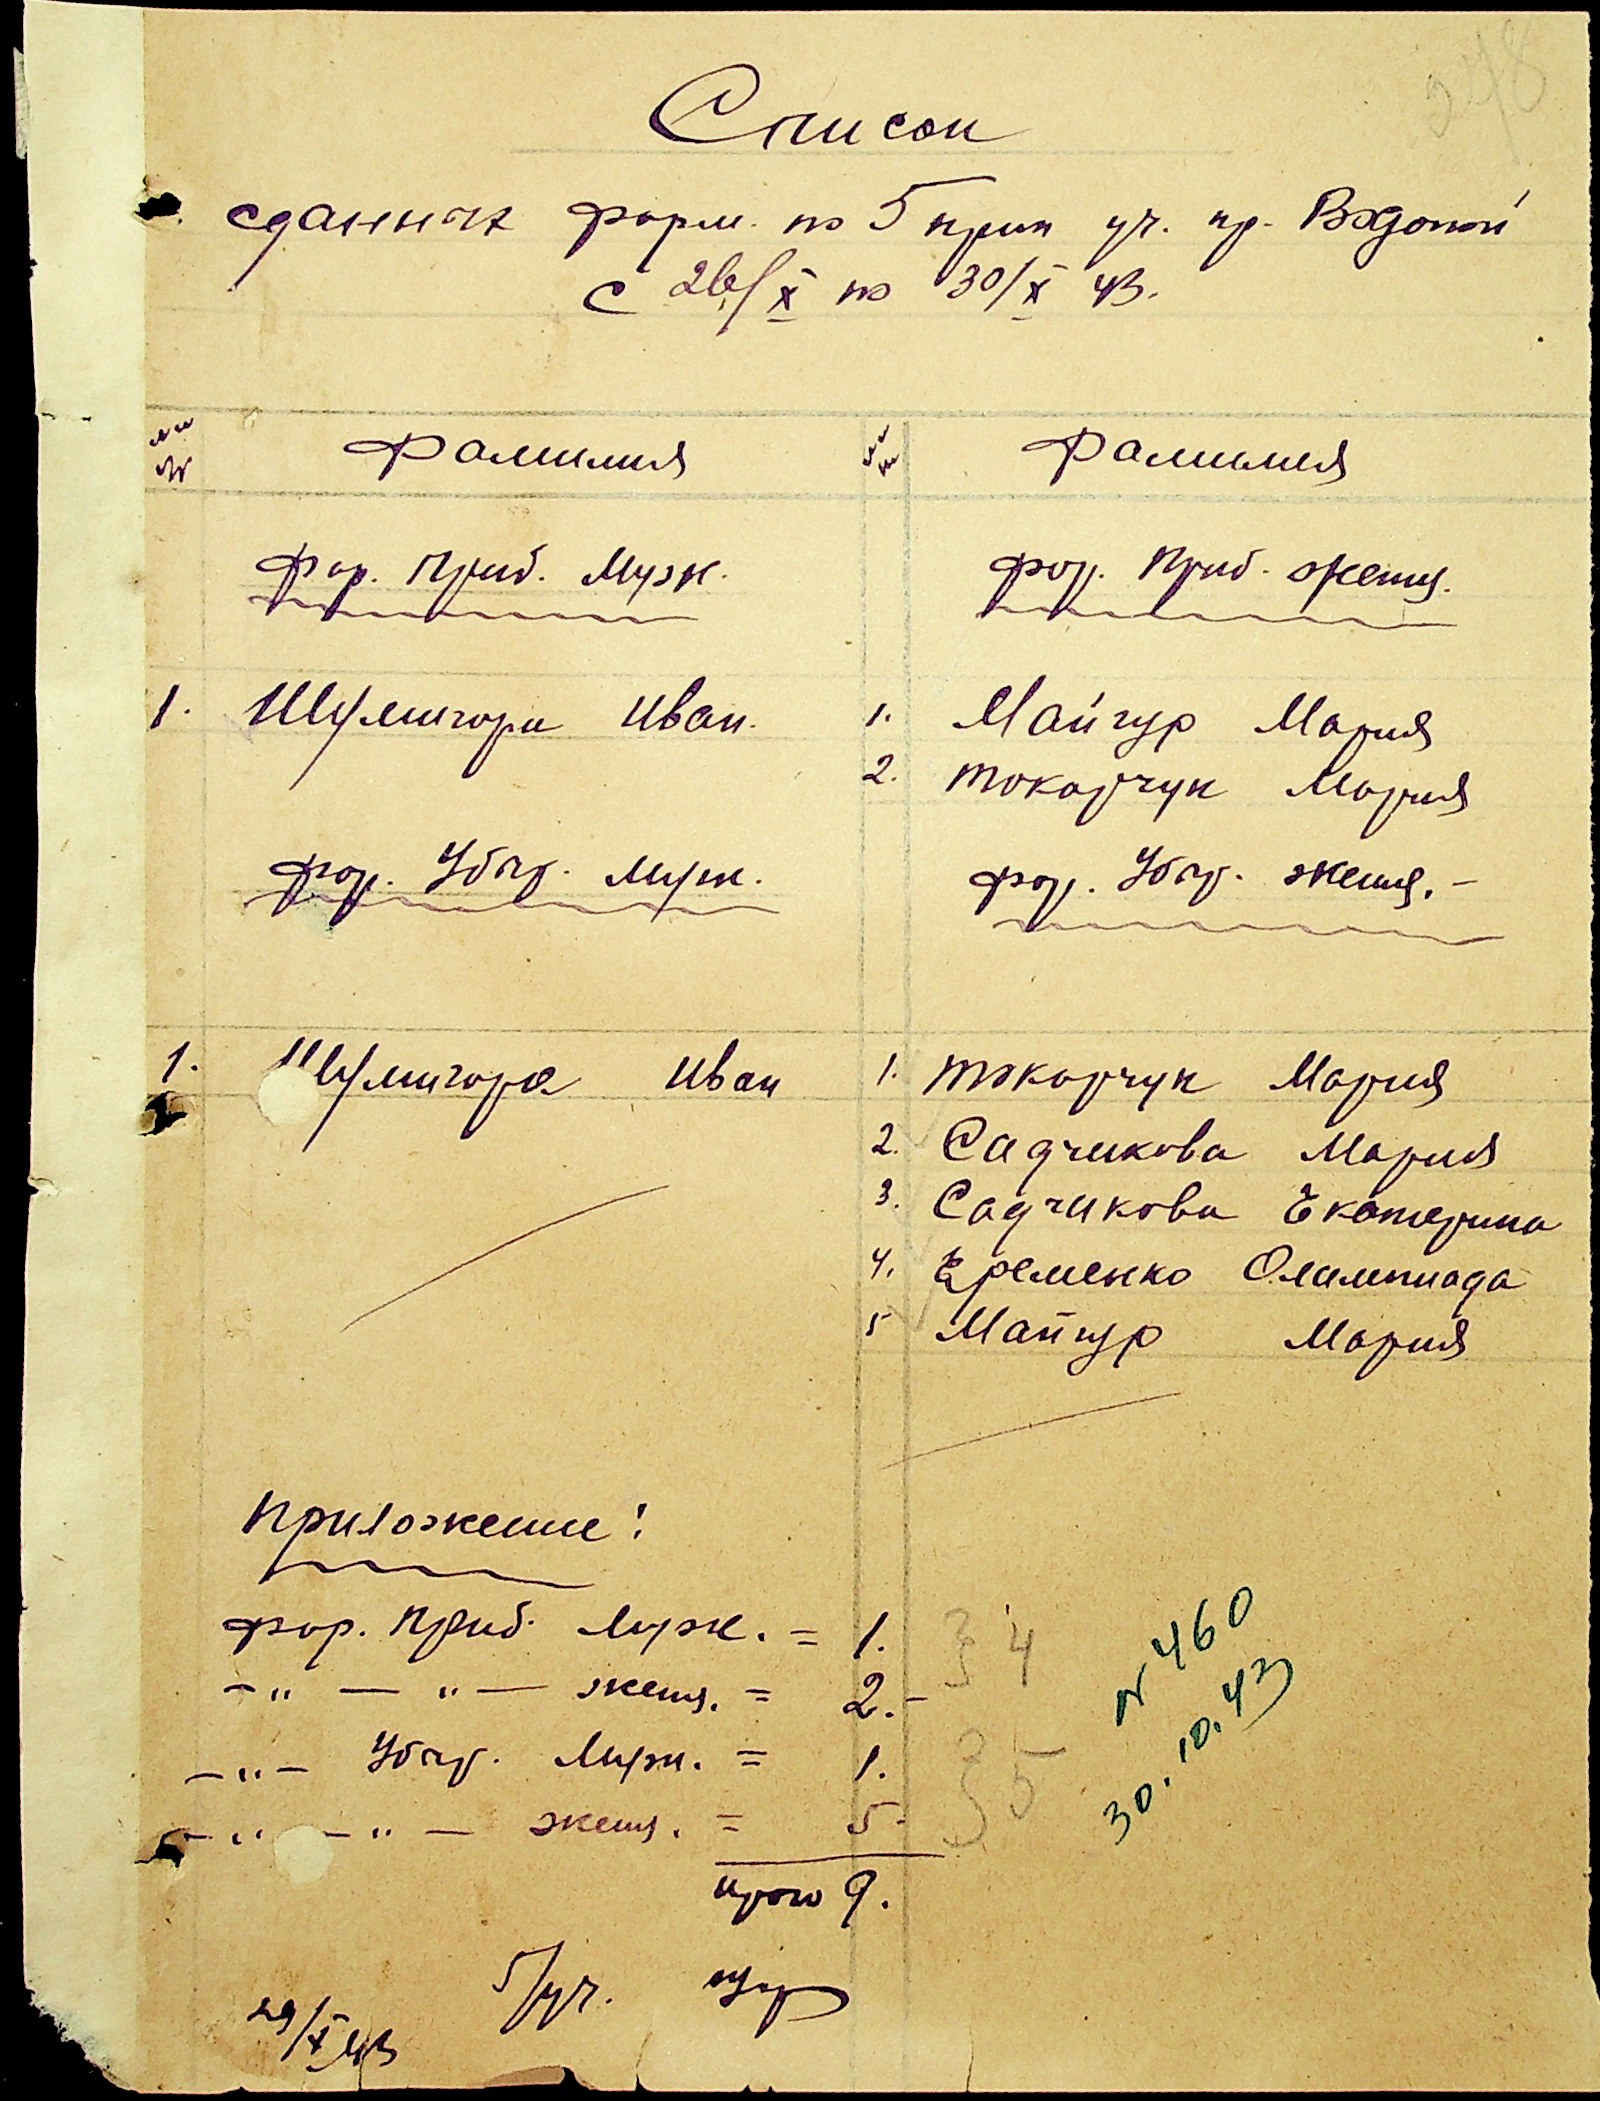 248
Список
сданных форм. по 5 прип уч. пр.
с 26/X по 30/X 43.
Фамилия
Фамилия
фор. Приб. Муж.
фор. Приб. женщ.
1. Шулигора Иван.
1. Майгур Мария
2. Токарчук Мария
фор. Убыт. Муж.
фор. Убыт. женщ. -
1. Шулигора Иван
1. Токарчук Мария
2. Садчикова Мария
3. Садчикова Екатерина
4. Еременко Олимпиада
5 Майгур Мария
Приложение:
фор. Приб. Муж. = 1.
-"- -"- женщ. = 2.-
} 4
-"- Убыт. Муж. = 1.
-"- -"- женщ. = 5.
} 5
Итого 9.
N 460
30.10.43
5/уч.
29/X 43